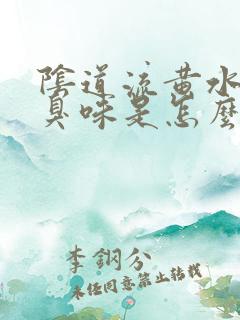 陰道流黃水
臭味是怎麼
李鋼分
未经同意禁止转载